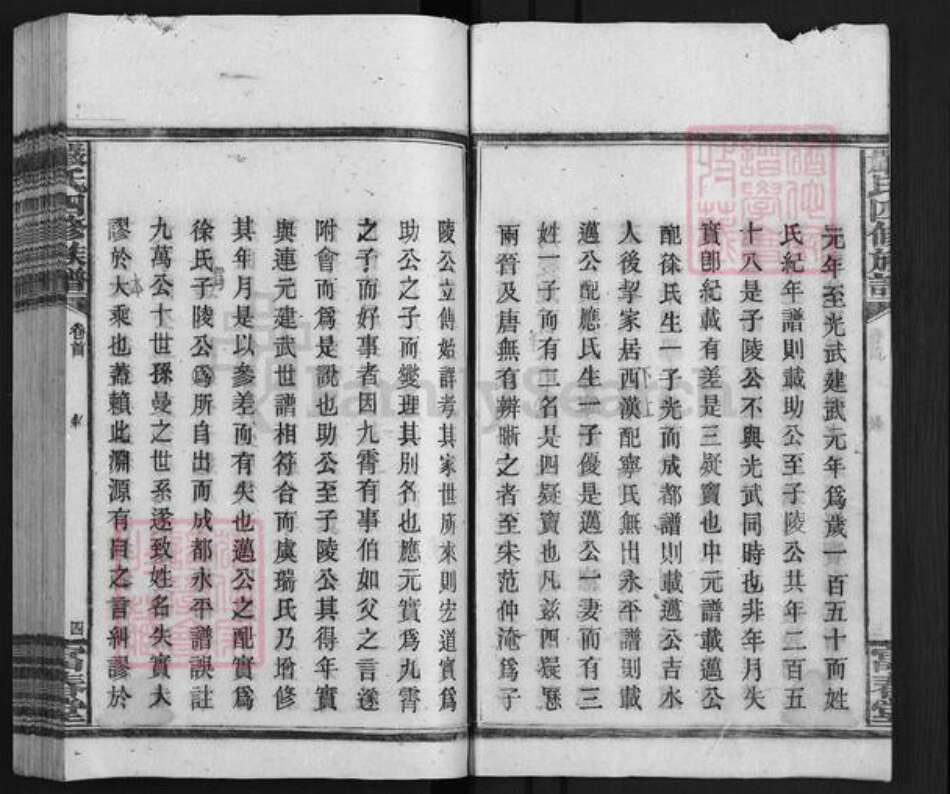 元年至光武建武元年爲歲一百五十而姓
氏紀年譜則載助公至子陵公共年二百五
十八是子陵公不與光武同時也非年月失
實卽紀載有差是三疑竇也中元譜載邁公
配徐氏生一子光而成都譜則載邁公吉水
人後挈家居西漢配寧氏無出永平譜則載
邁公配應氏生一子優是邁公一妻而有三
姓一子而有二名是四疑竇也凡茲四疑懸
兩晉及唐無有辨晰之者至朱范仲淹爲子
陵公立傳始詳考其家世所來則宏道實爲
助公之子而燮理其別名也應元實爲九霄
之子而好事者因九霄有事伯如父之言遂
附會而爲是說也助公至子陵公其得年實
與連元建武世譜相符合而虞瑞氏乃增修
其年月是以參差而有失也邁公之配實爲
徐氏子陵公爲所自出而成都永平譜誤註
九萬公十世孫曼之世系遂致姓名失實大
謬於大乘也蓋賴此淵源有自之言糾謬於
嚴氏四修族譜
卷首
四
富春堂
FamilySearch